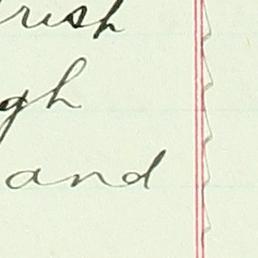 rish
gh
and